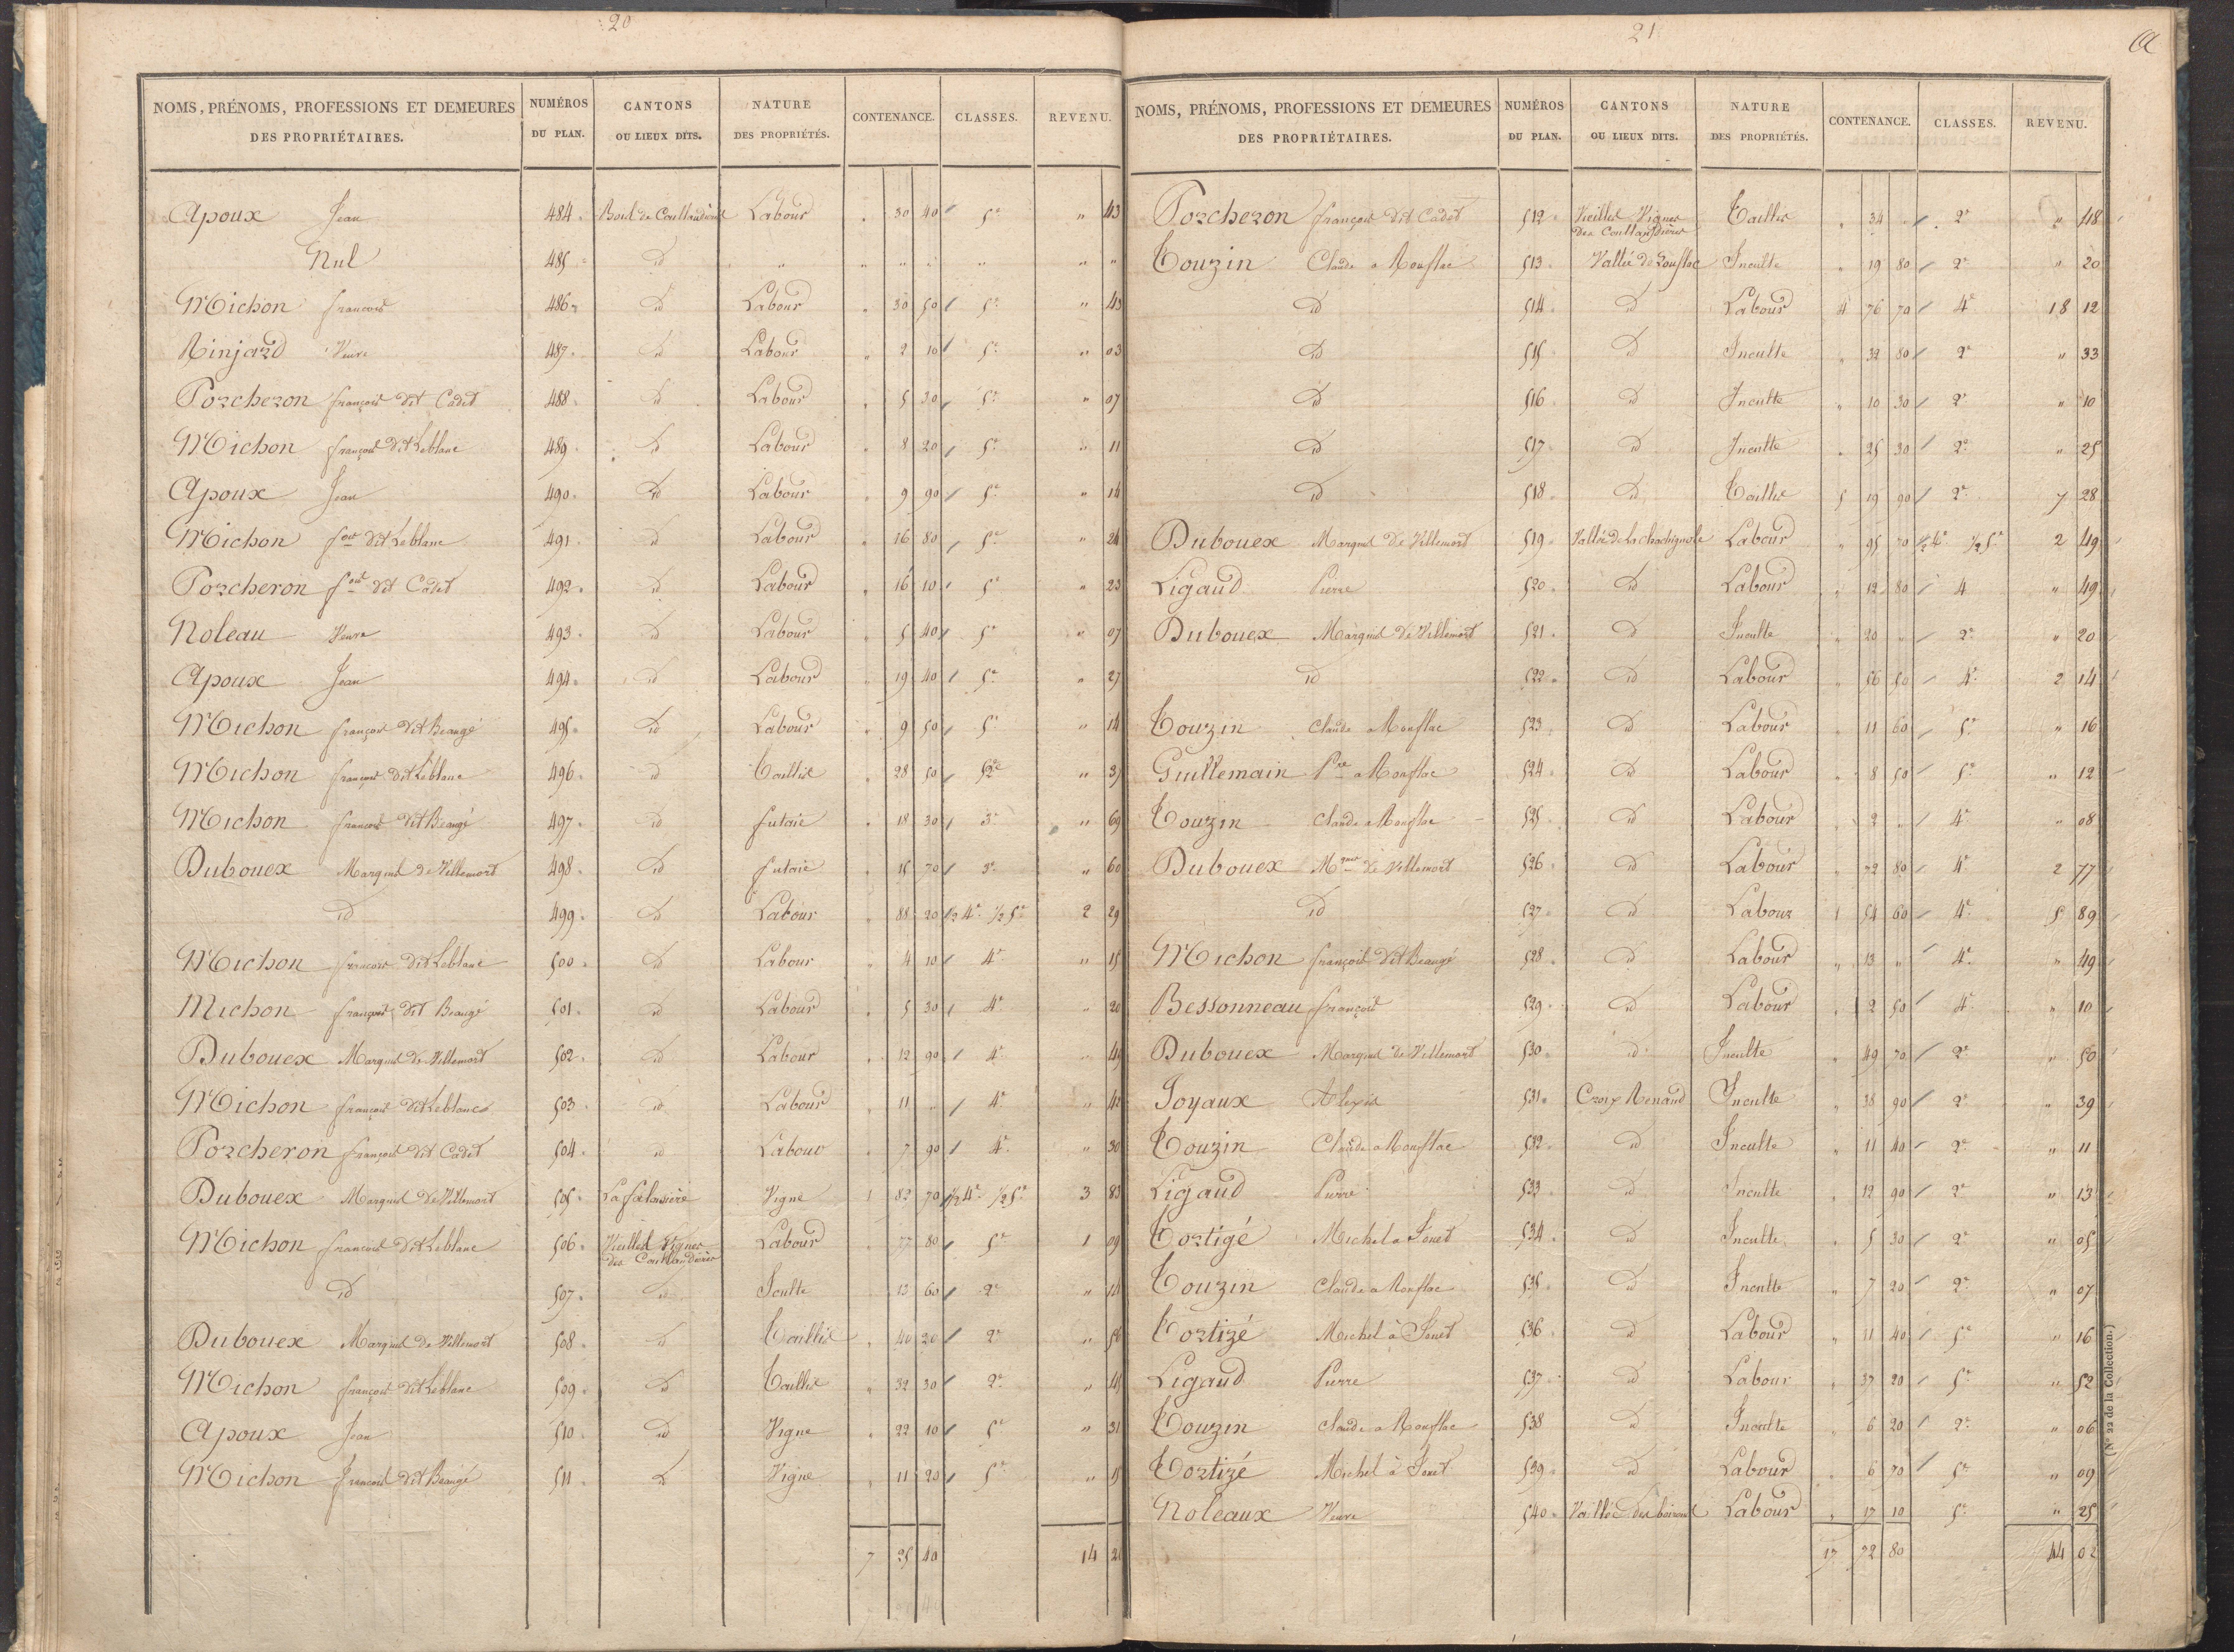 20
NOMS, PRÉNOMS, PROFESSIONS ET DEMEURES DES PROPRIÉTAIRES. NUMÉROS DU PLAN. CANTONS OU LIEUX DITS. NATURE DES PROPRIÉTÉS. CONTENANCE. CLASSES. REVENU.
Apoux Jean 484 Bout de Coullaudieres Labour " 30 40 5e " 43
Nul 485 id " " " " " " "
Michon francois 486 id Labour " 30 50 5e " 43
Rinjard Veuve 487 id Labour " 2 10 5e " 03
Porcheron françois dit Cadet 488 id Labour " 5 30 5e " 07
Michon françois dit Leblanc 489 id Labour " 8 20 5e " 11
Apoux Jean 490 id Labour " 9 90 5e " 14
Michon fois dit Leblanc 491 id Labour " 16 80 5e " 24
Porcheron fois dit Cadet 492 id Labour " 16 10 5e " 23
Noleau Veuve 493 id Labour " 5 40 5e " 07
Apoux Jean 494 id Labour " 19 40 5e " 27
Michon françois dit Beaugé 495 id Labour " 9 50 5e " 14
Michon françois dit Leblanc 496 id Taillis " 28 50 2e " 37
Michon françois dit Beaugé 497 id futaie " 18 30 3e " 69
Dubouex Marquis de Villemort 498 id futaie " 15 70 3e " 60
id 499 id Labour " 88 20 1/2 4e 1/2 5e 2 29
Michon francois dit Leblanc 500 id Labour " 4 10 4e " 15
Michon françois dit Beaugé 501 id Labour " 5 30 4e " 20
Dubouex Marquis de Villemort 502 id Labour " 12 90 4e " 49
Michon françois dit Leblanc 503 id Labour " 11 " 4e " 42
Porcheron françois dit Cadet 504 id Labour " 7 90 4e " 30
Dubouex Marquis de Villemort 505 Vigne 1 82 70 1/2 4e 1/2 5e 3 83
Michon francois dit Leblanc 506 Vieilles Vignes des Coullaudieres Labour " 77 80 5e 1 09
id 507 id Iculte " 13 60 2e " 14
Dubouex Marquis de Villemort 508 id Taillis " 40 20 2e " 56
Michon françois dit Leblanc 509 id Taillis " 32 30 2e " 45
Apoux Jean 510 id Vigne " 22 10 5e " 31
Michon françois dit Beaugé 511 id Vigne " 11 20 5e " 15
7 25 40 14 24
21
NOMS, PRÉNOMS, PROFESSIONS ET DEMEURES DES PROPRIÉTAIRES. NUMÉROS DU PLAN. CANTONS OU LIEUX DITS. NATURE DES PROPRIÉTÉS. CONTENANCE. CLASSES. REVENU.
Porcheron françois dit Cadet 512 Vieilles Vignes des Coullaudieres Taillis " 34 " 2e " 48
Touzin Claude a Rouflac 513 Vallée de Rouflac Inculte " 19 80 2e " 20
id 514 id Labour 4 76 70 4e 18 12
id 515 id Inculte " 32 80 2e " 33
id 516 id Inculte " 10 30 2e " 10
id 517 id Inculte " 25 30 2e " 25
id 518 id Taillis 5 19 90 2e 7 28
Dubouex Marquis de Villemort 519 Vallée de La chachignole Labour " 95 70 1/2 4e 1/2 5e 2 49
Ligaud Pierre 520 id Labour " 12 80 4 " 49
Dubouex Marquis de Villemort 521 id Inculte " 20 " 2e " 20
id 522 id Labour " 56 50 4e 2 14
Touzin Claude a Rouflac 523 id Labour " 11 60 5e " 16
Guillemain Pre a Rouflac 524 id Labour " 8 50 5e " 12
Touzin Claude a Rouflac 525 id Labour " 2 " 4e " 08
Dubouex Mquis de Villemort 526 id Labour " 72 80 4e 2 77
id 527 id Labour 1 54 60 4e 5 89
Michon françois dit Beaugé 528 id Labour " 13 " 4e " 49
Bessonneau françois 529 id Labour " 2 50 4e " 10
Dubouex Marquis de Villemort 530 id Inculte " 49 70 2e " 50
Joyaux Alexis 531 Croix Renaud Inculte " 38 90 2e " 39
Touzin Claude a Rouflac 532 id Inculte " 11 40 2e " 11
Ligaud Pierre 533 id Inculte " 12 90 2e " 13
Tortigé Michel a Jouet 534 id Inculte " 5 30 2e " 05
Touzin Claude a Rouflac 535 id Inculte " 7 20 2e " 07
Tortizé Michel à Jouet 536 id Labour " 11 40 5e " 16
Ligaud Pierre 537 id Labour " 37 20 5e " 52
Touzin Claude a Rouflac 538 id Inculte " 6 20 2e " 06
Tortizé Michel à Jouet 539 id Labour " 6 70 5e " 09
Noleaux Veuve 540 Labour " 17 10 5e " 25
17 72 80 44 02
(N° 22 de la Collection.)